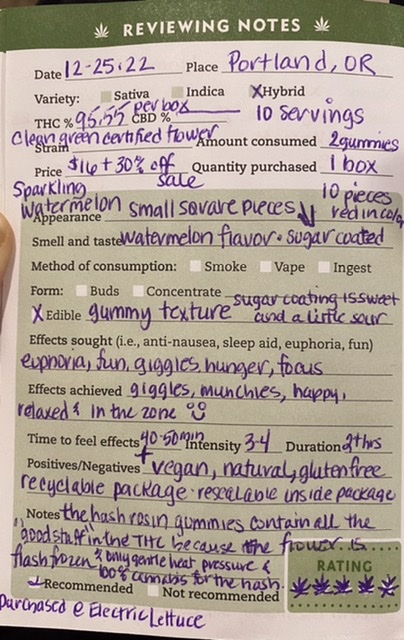 REVIEWING NOTES
Date 12-25-22 Place Portland, OR
Variety: Sativa Indica XHybrid
THC % 95.55 per box CBD % 10 servings
Clean green certified flower
Strain Amount consumed 2 gummies
Price $16 + 30% off sale Quantity purchased 1 box
Sparkling watermelon 10 pieces
Appearance small square pieces red in color
Smell and taste watermelon flavor • sugar coated
Method of consumption: Smoke Vape Ingest
Form: Buds Concentrate sugar coating is sweet
X Edible gummy texture and a little sour
Effects sought (i.e., anti-nausea, sleep aid, euphoria, fun)
euphoria, fun, giggles, hunger, focus
Effects achieved giggles, munchies, happy,
relaxed & in the zone
Time to feel effects 40-50 min Intensity 3-4 Duration 2+hrs
Positives/Negatives + vegan, natural, gluten free
recyclable package • resealable inside package
Notes the hash rosin gummies contain all the
"good stuff" in the THC because the flower is
flash frozen & only gentle heat, pressure &
100% cannabis for the hash.
RATING
Recommended Not recommended
Purchased @ Electric Lettuce